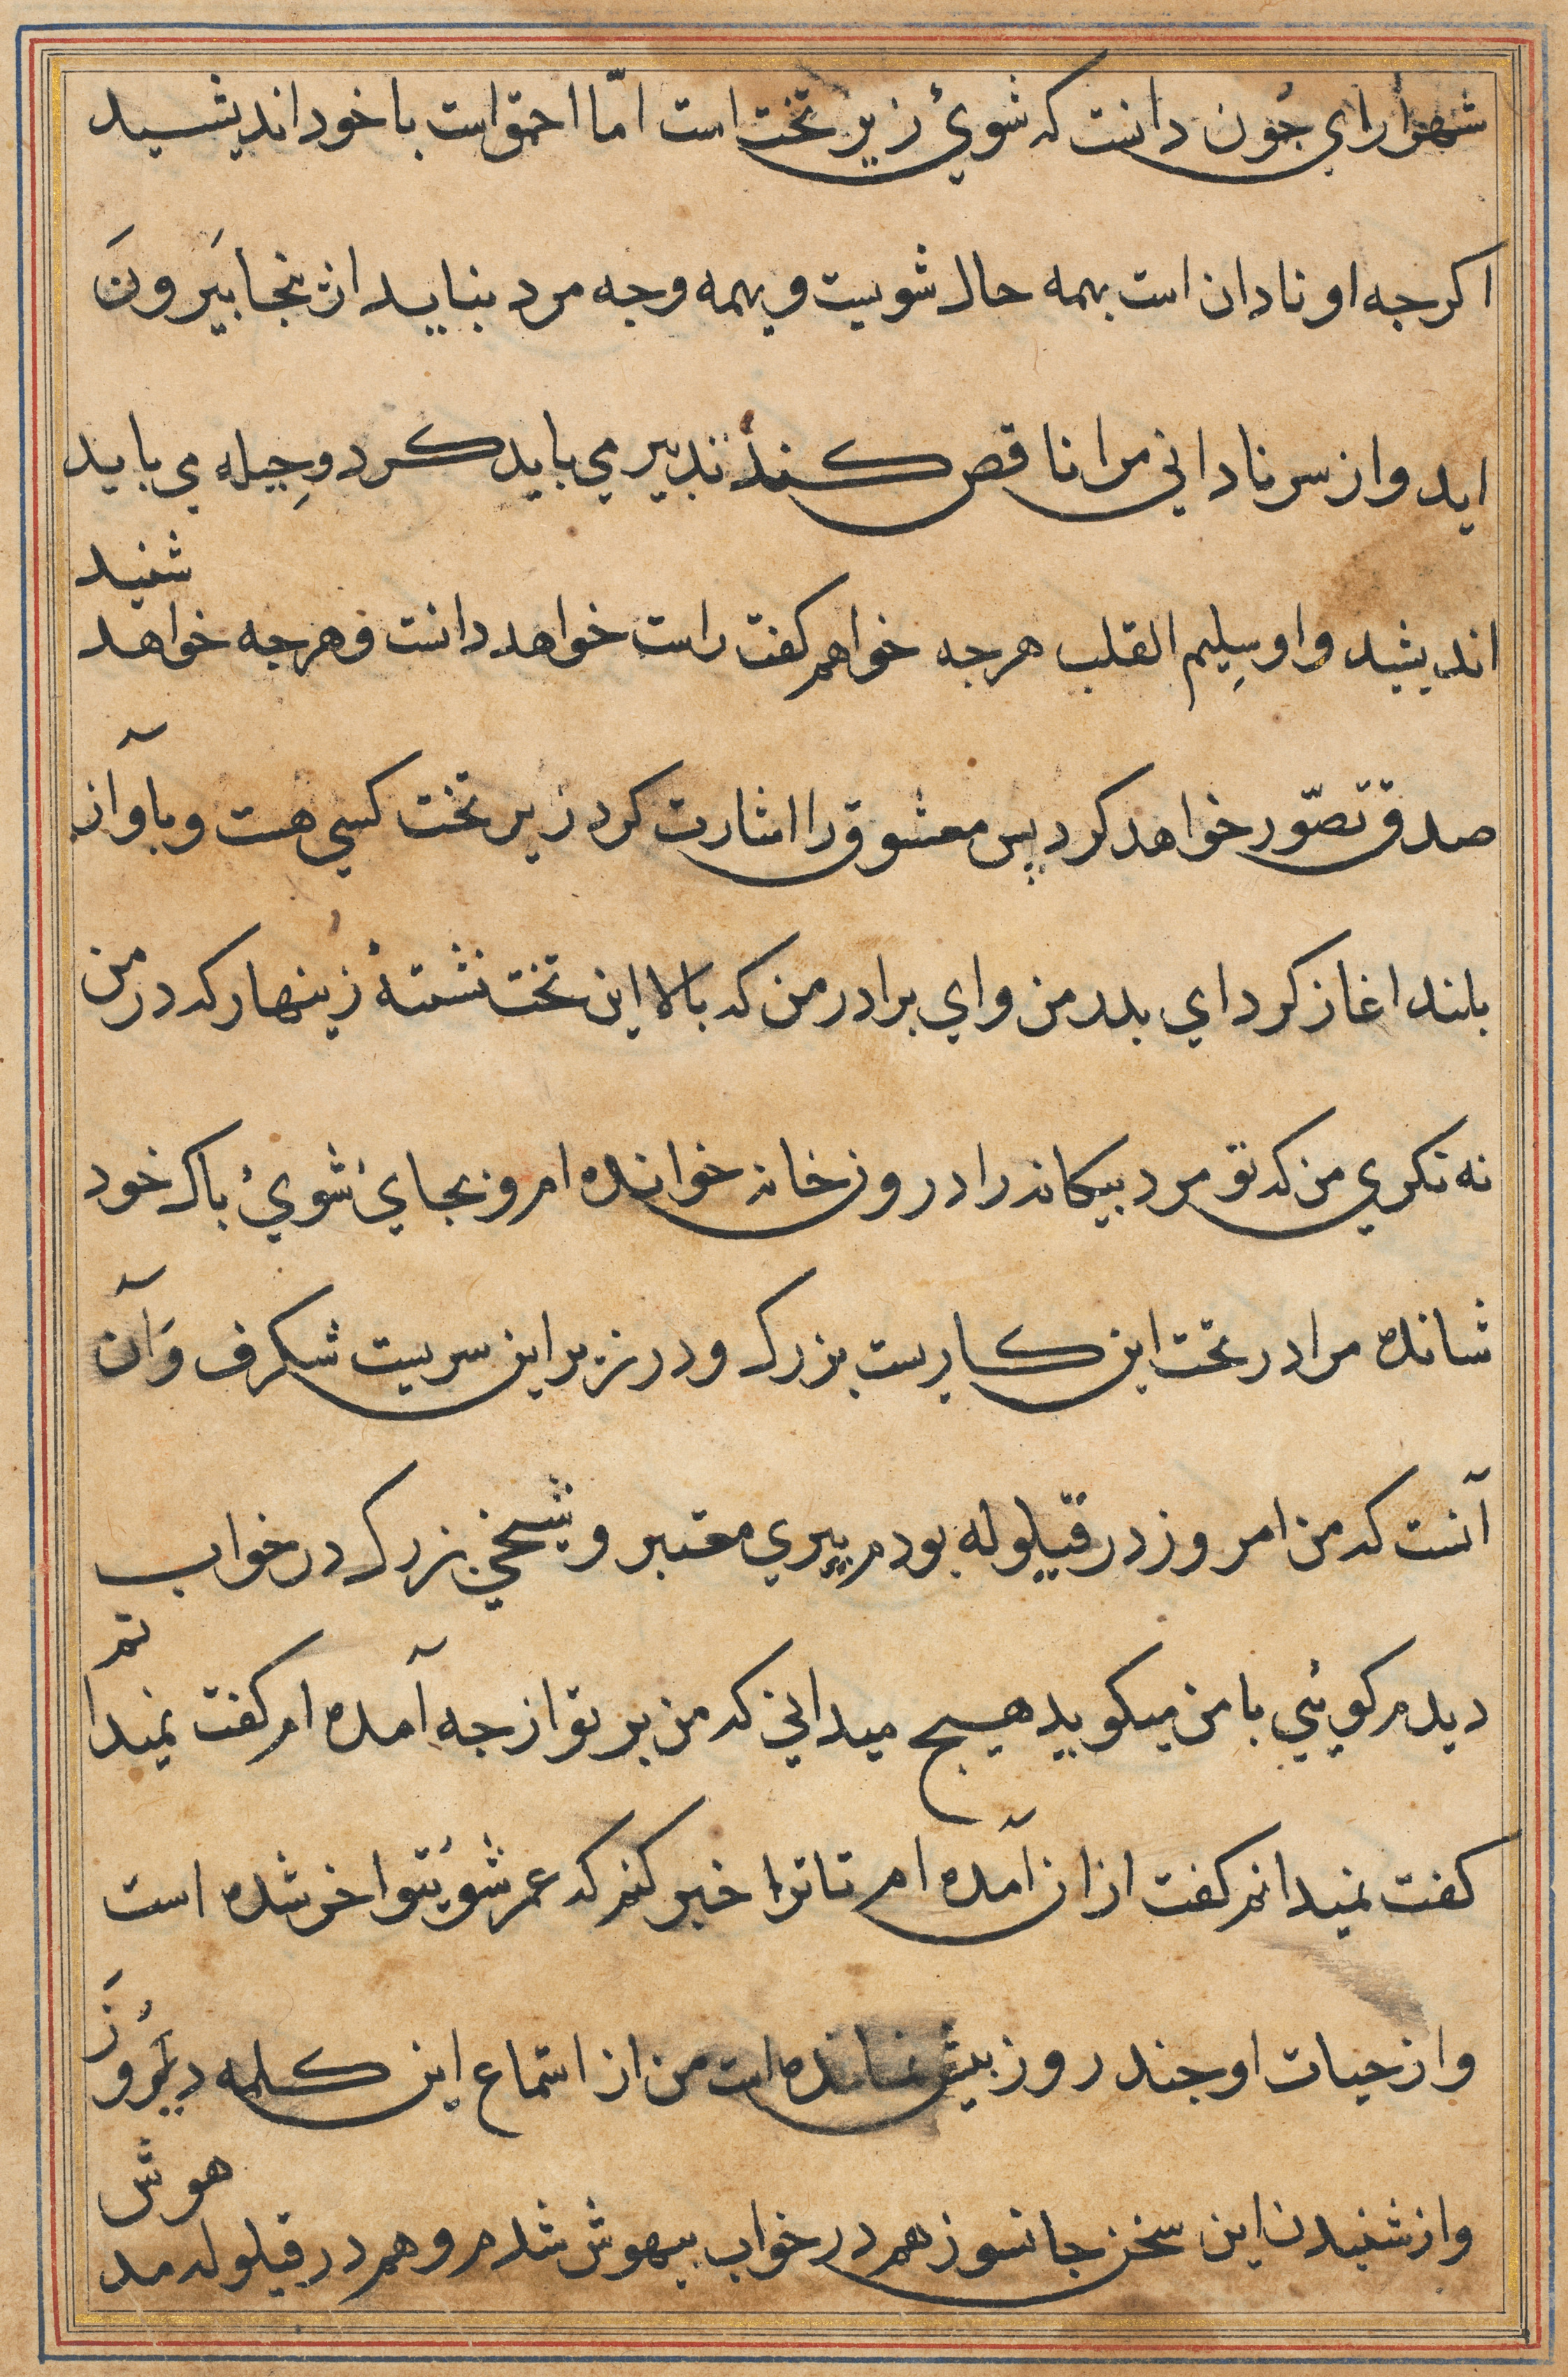 شهرارای جون دانست که شوئ زیر تخت است امّا احمق است با خود اندیشید
اکرجه او نادان است بهمه حال شویست و بهمه وجه مرد بناید از نجا بیَرونَ
اید و از سر نادانی مرا ناقص کند تدبیر می باید کرد و حِیله می باید
اندیشید و او سِلیم القلب هرجه خواهم کفت راست خواهد دانست و هرجه خواهد
شنید
صدق تصّور خواهد کرد پس معشوق را اشارت کرد زیر تخت کسی هست و بآواز
بلند اغاز کرد ای بدر من و ای برادر من که بالا این تخت نشستهٔ زینهار که در من
نه نکری من که تو مرد بیکانه را در روز خانه خوانده امروز بجای شوئ باک خود
شانده مرا در تخت این کاریست بزرک و در زیر این سریست شکرف وَآن
آنست که من امروز در قیلوله بودم پیری معتبر و شیخی بزرک در خواب
دیدم کوئی با من میکوید هیج میدانی که من بر تو از جه آمده ام کفت نمیدا
نم
کفت نمیدانم کفت از ان آمده ام تا ترا خبر کنم که عمر شوئتو اخر شده است
و از حیات او جند روز بیش نمانده است من از استماع این کلمه دیرُو
زَ
و از شنیدن این سخن جانسوز هم در خواب بیهوش شدم و هم در قیلوله مد
هوش